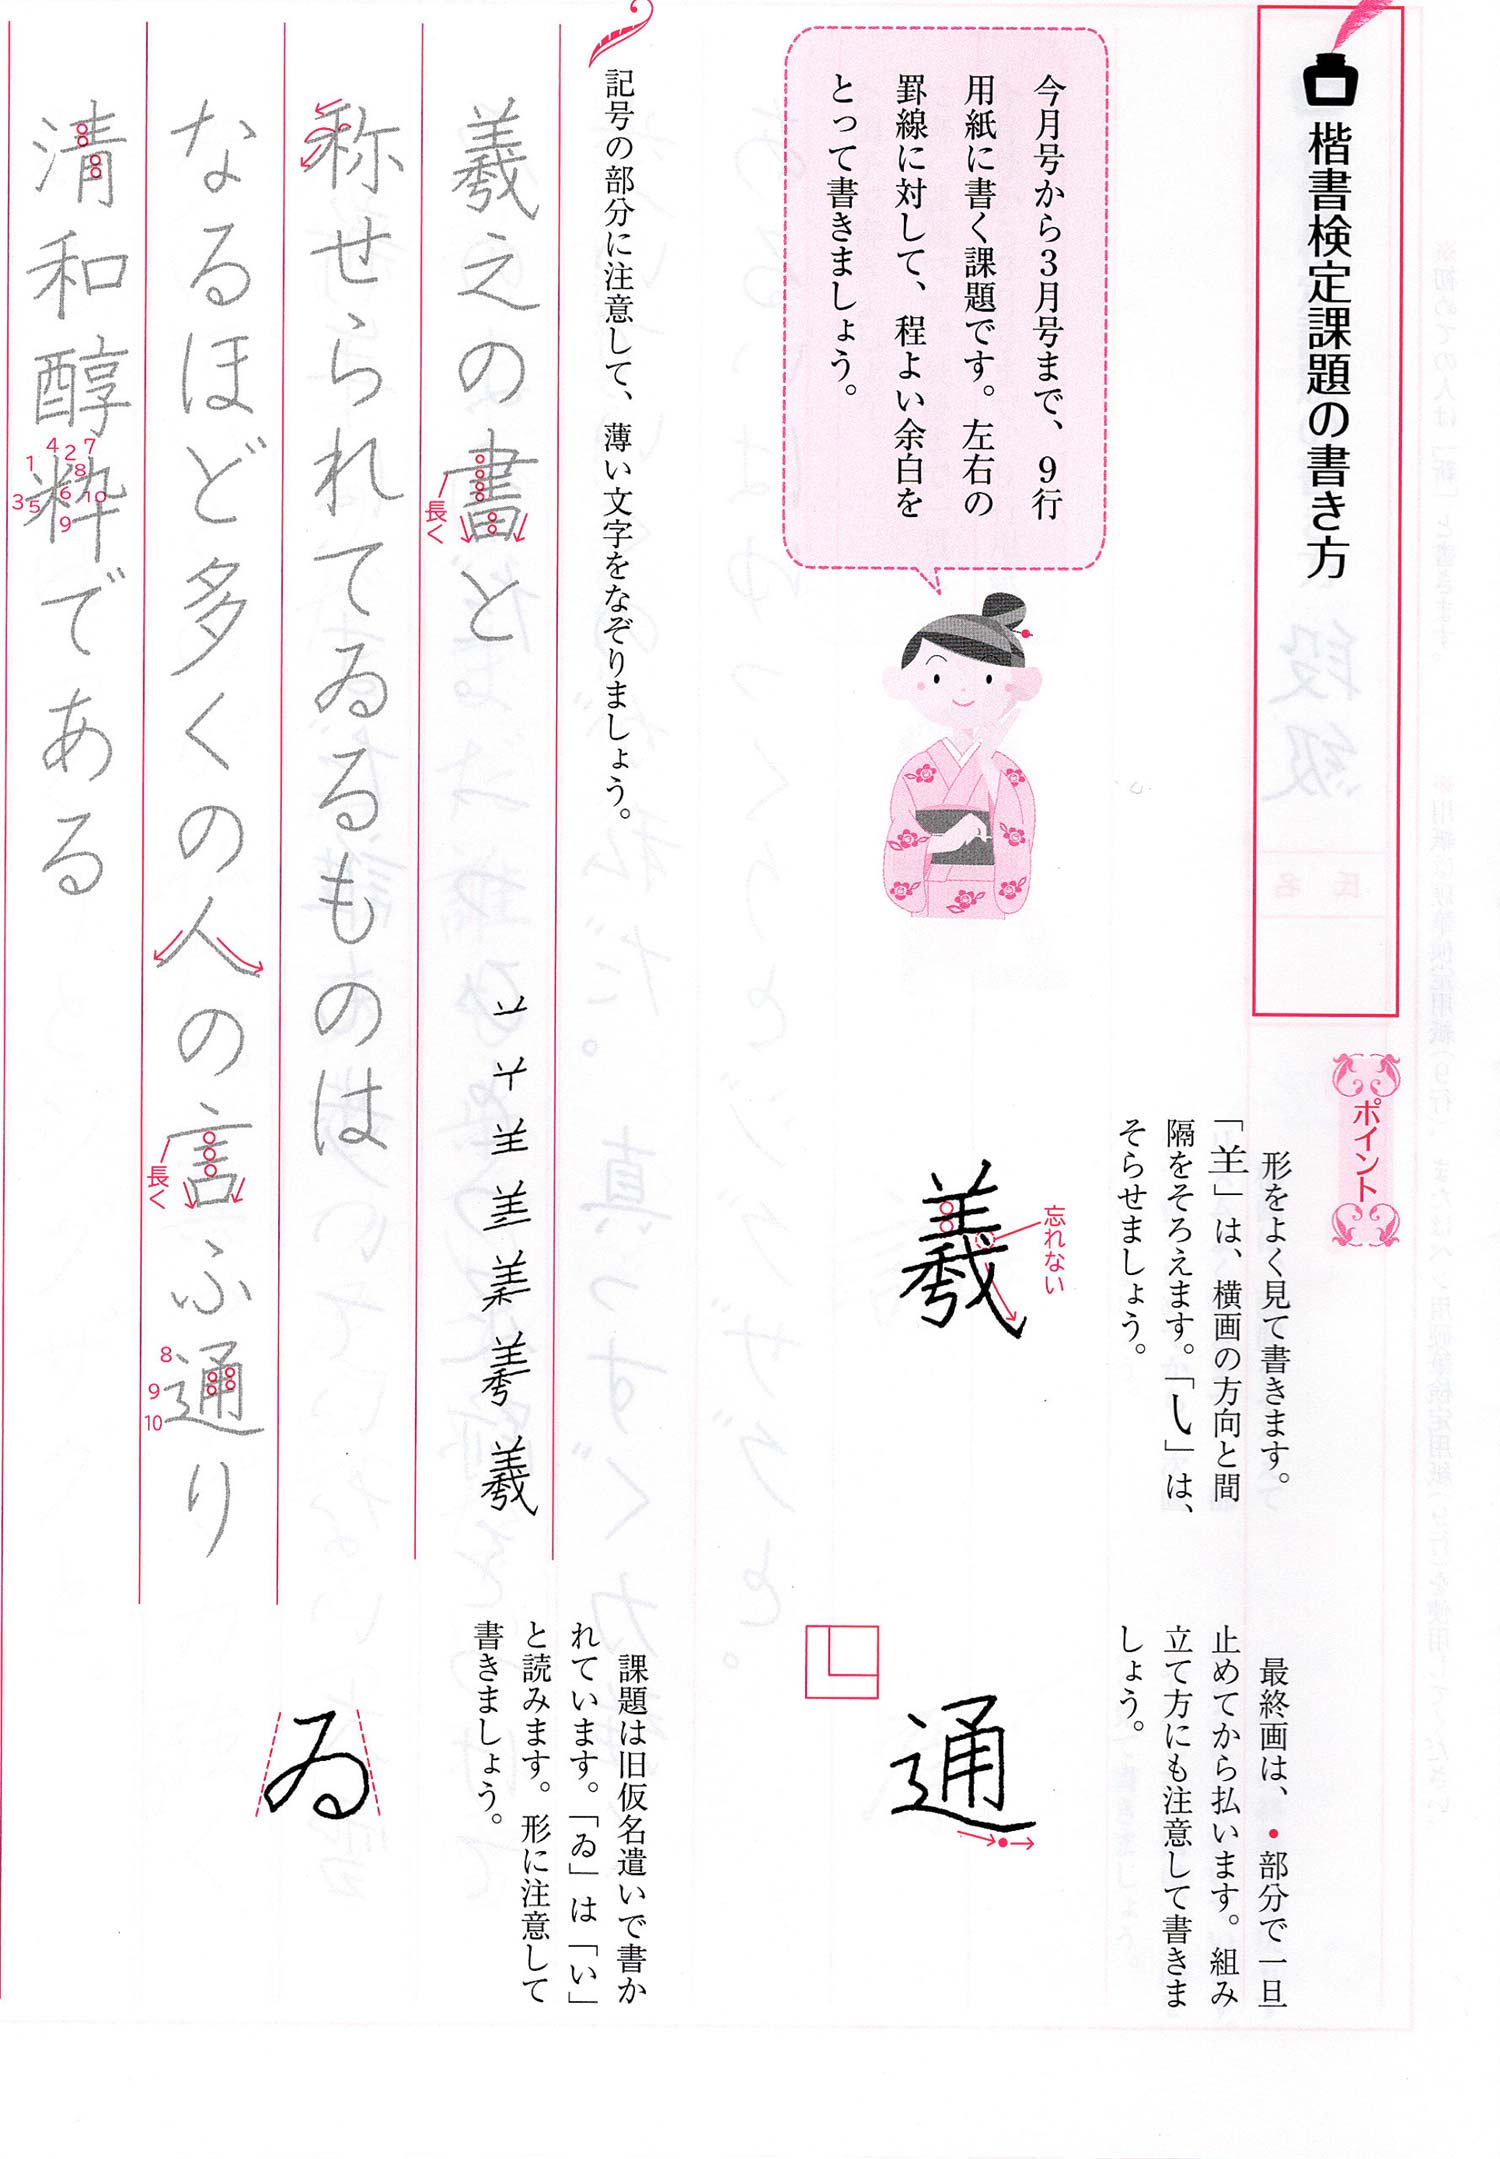 楷書検定課題の書き方
今月号から3月号まで、9行
用紙に書く課題です。左右の
罫線に対して、程よい余白を
とって書きましょう。
ポイント
形をよく見て書きます。
「𦍌」は、横画の方向と間
隔をそろえます。「㇂」は、
そらせましょう。
忘れない
羲
最終画は、・部分で一旦
止めてから払います。組み
立て方にも注意して書きま
しょう。
通
課題は旧仮名遣いで書か
れています。「ゐ」は「い」
と読みます。形に注意して
書きましょう。
ゐ
記号の部分に注意して、薄い文字をなぞりましょう。
羲之の書と
長く
羲
称せられてゐるものは
なるほど多くの人の言ふ通り
長く
8
9
10
清和醇粋である
1
2
3
4
5
6
7
8
9
10